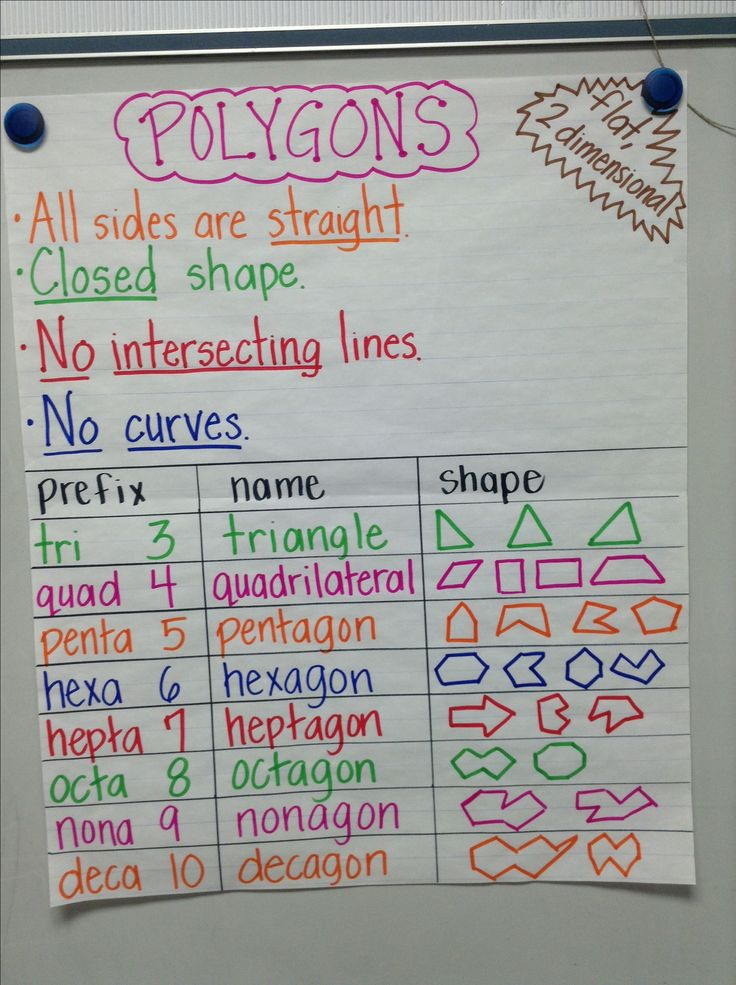 POLYGONS
flat,
2 dimensional
• All sides are straight.
• Closed shape.
• No intersecting lines.
• No curves.
prefix name shape
tri 3 triangle
quad 4 quadrilateral
penta 5 pentagon
hexa 6 hexagon
hepta 7 heptagon
octa 8 octagon
nona 9 nonagon
deca 10 decagon